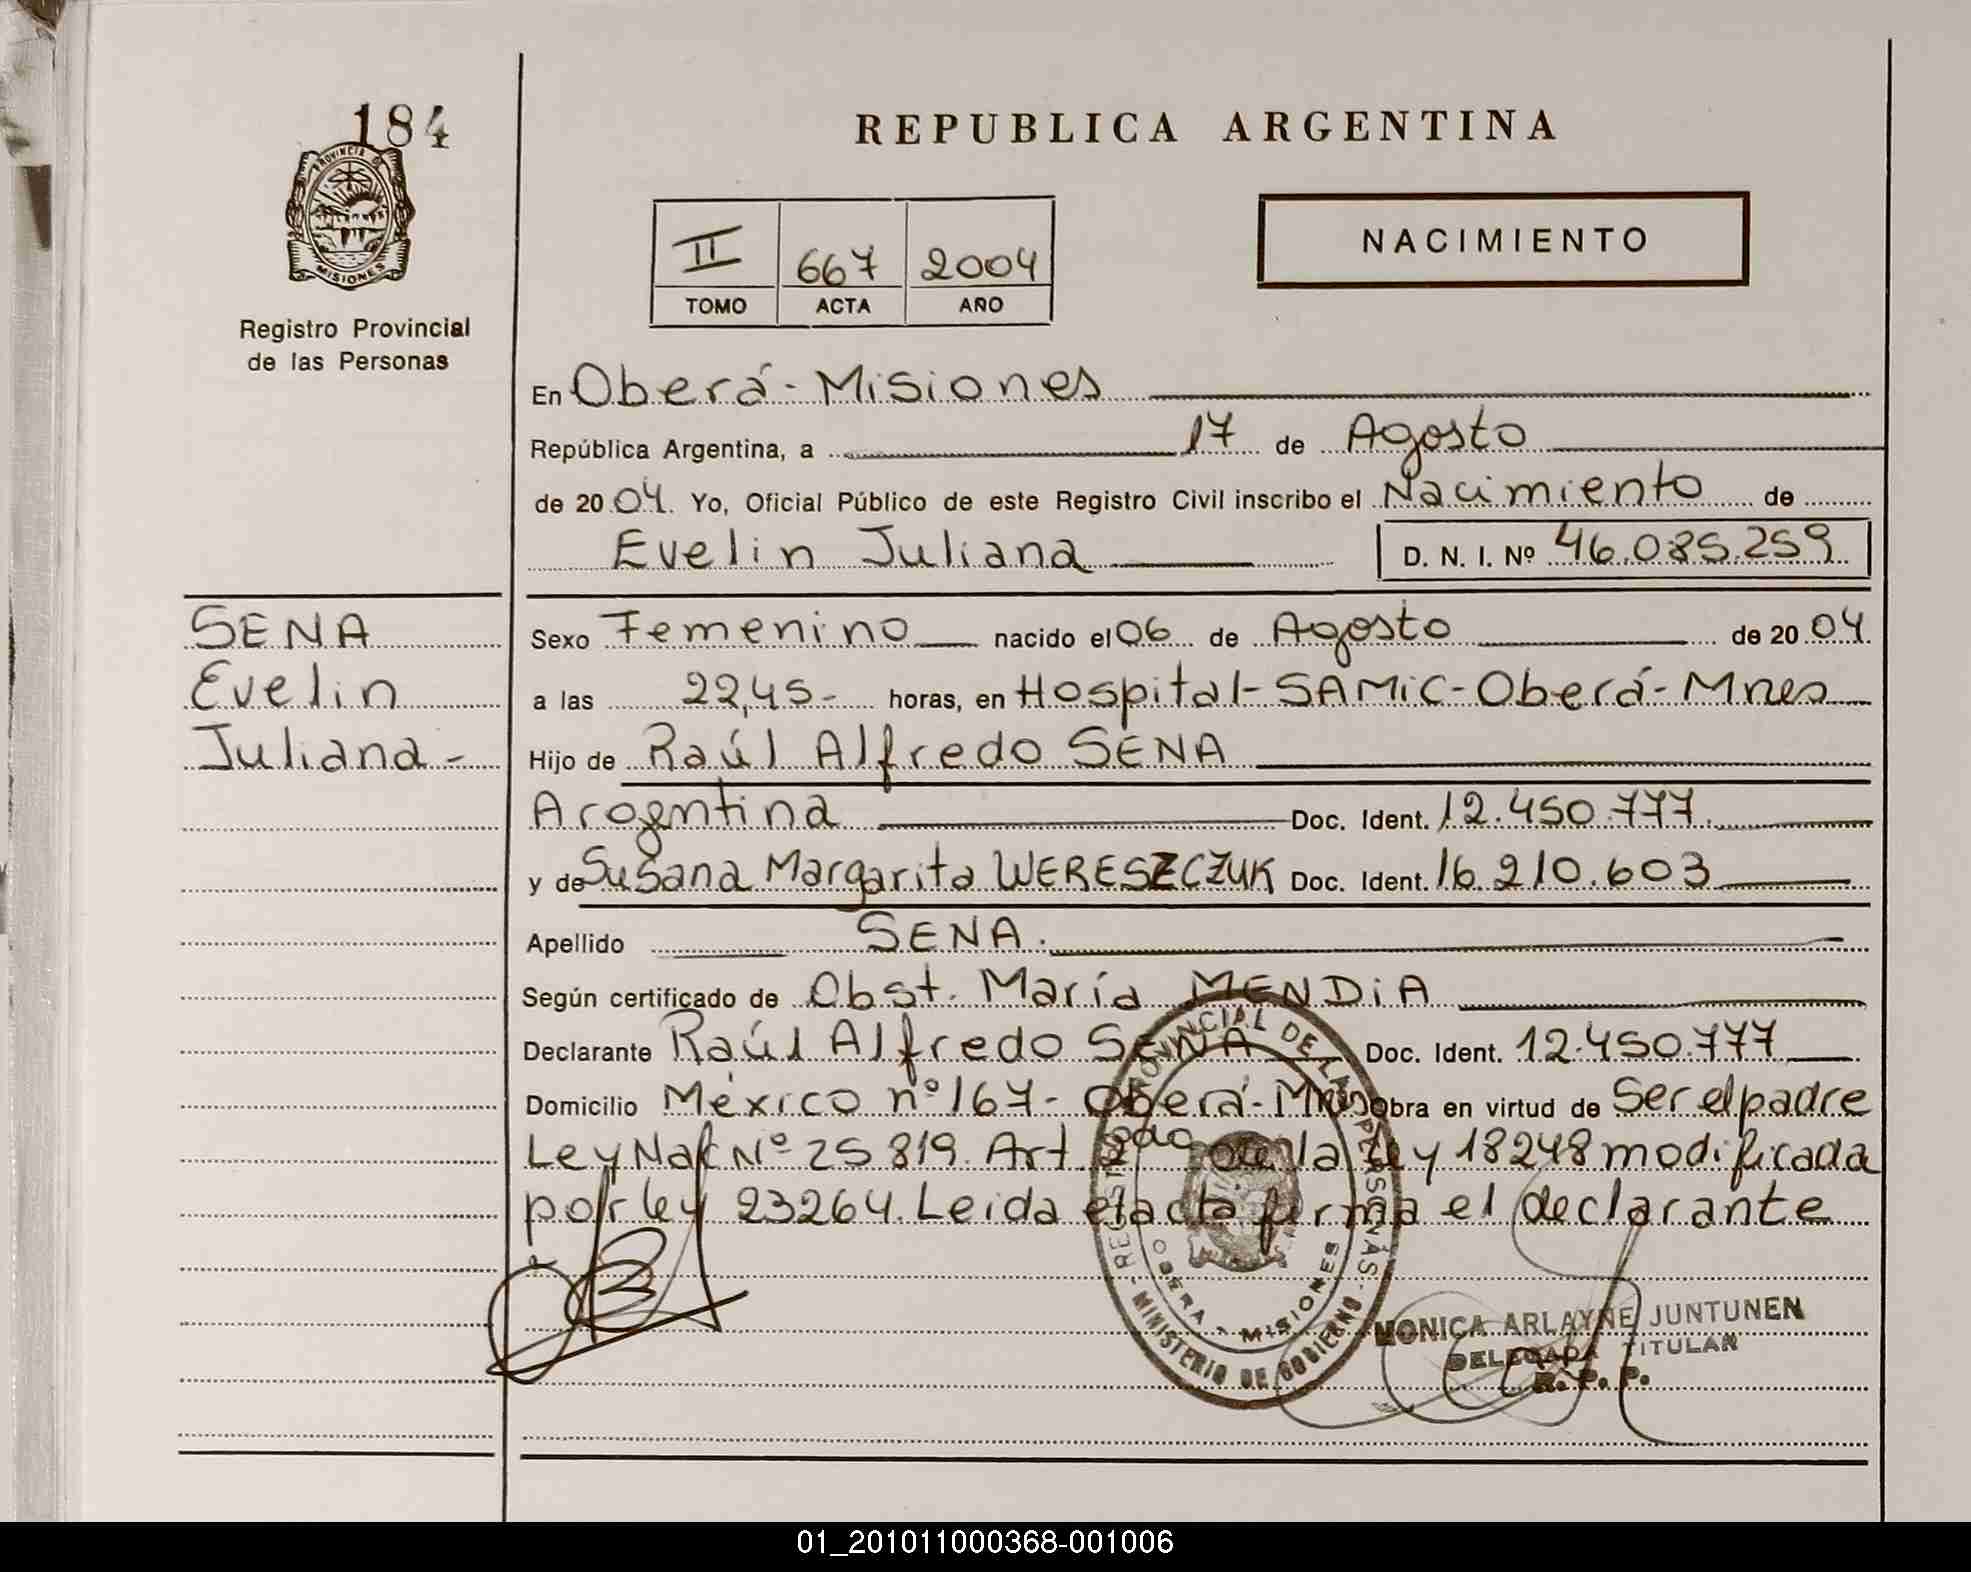 184
PROVINCIA DE
MISIONES
Registro Provincial
de las Personas
SENA
Evelin
Juliana -
REPUBLICA ARGENTINA
II 667 2004
TOMO ACTA AÑO
NACIMIENTO
En Oberá - Misiones
República Argentina, a 17 de Agosto
de 2004. Yo, Oficial Público de este Registro Civil inscribo el Nacimiento de
Evelin Juliana D. N. I. Nº 46.085.259
Sexo Femenino nacido el 06 de Agosto de 2004
a las 22,45- horas, en Hospital-SAMiC-Oberá-Mnes
Hijo de Raúl Alfredo SENA
Argentina Doc. Ident. 12.450.777.
y de Susana Margarita WERESZCZUK Doc. Ident. 16.210.603
Apellido SENA.
Según certificado de Obst. María MENDiA
Declarante Raúl Alfredo SENA Doc. Ident. 12.450.777
Domicilio México nº 167- Oberá-Mnes Obra en virtud de Ser el padre
Ley Nac Nº 25819. Art 2do de la Ley 18248 modificada
por ley 23264. Leida el acta firma el declarante
REGISTRO PROVINCIAL DE LAS PERSONAS
OBERA - MISIONES
MINISTERIO DE GOBIERNO
MONICA ARLAYNE JUNTUNEN
DELEGADA TITULAR
R. P. P.
01_201011000368-001006